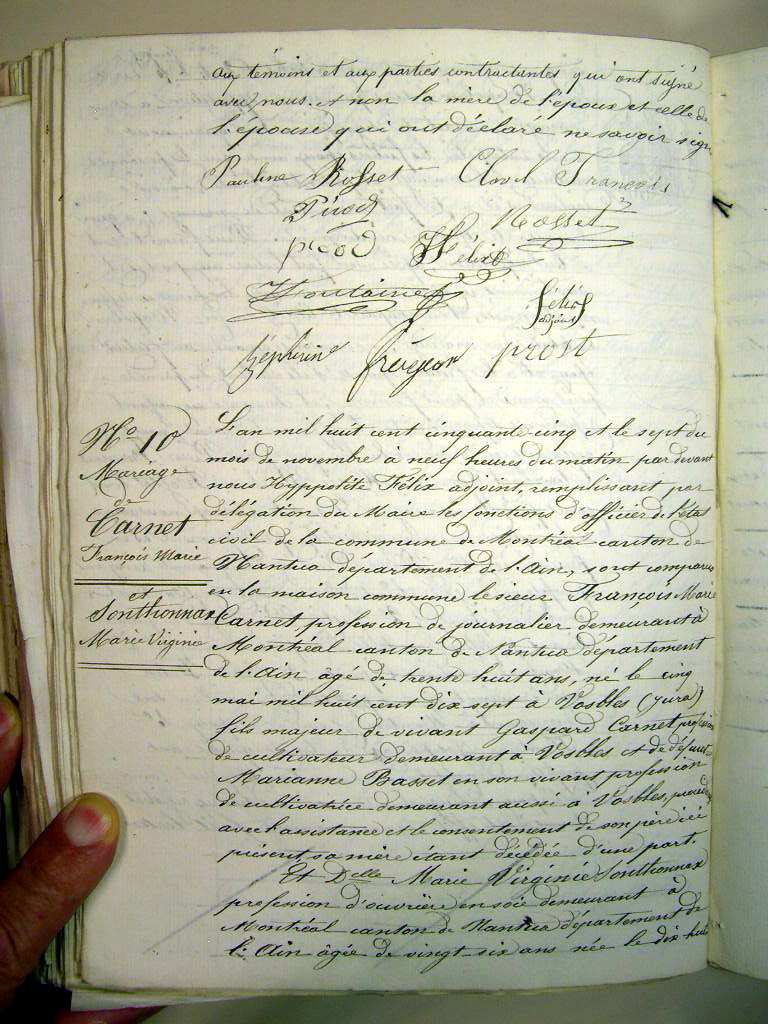 aux témoins et aux parties contractantes qui ont signé
avec nous. et non la mère de l'époux et celle de
l'épouse qui ont déclaré ne savoir sign
Pauline Rosset Clovel François
Rosset
Félix
Félix
adjoint
Zéphirin prost
No 10
Mariage
de
Carnet
François Marie
et
Sonthonnax
Marie Virginie
L'an mil huit cent cinquante cinq et le sept du
mois de novembre à neuf heures du matin par devant
nous Hyppolite Félix adjoint, remplissant par
délégation du Maire les fonctions d'officier de l'état
civil de la commune de Montréal canton de
Nantua département de l'Ain, sont comparus
en la maison commune le sieur François Marie
Carnet profession de journalier demeurant à
Montréal canton de Nantua département
de l'Ain âgé de trente huit ans, né le cinq
mai mil huit cent dix sept à Vosbles (Jura)
fils majeur de vivant Gaspard Carnet profession
de cultivateur demeurant à Vosbles et de défunte
Marianne Basset en son vivant profession
de cultivatrice demeurant aussi à Vosbles,
avec l'assistance et le consentement de son père ici
présent, sa mère étant décédée d'une part.
Et Delle Marie Virginie Sonthonnax
profession d'ouvrière en soie demeurant à
Montréal canton de Nantua département de
l'Ain âgée de vingt six ans née le dix huit